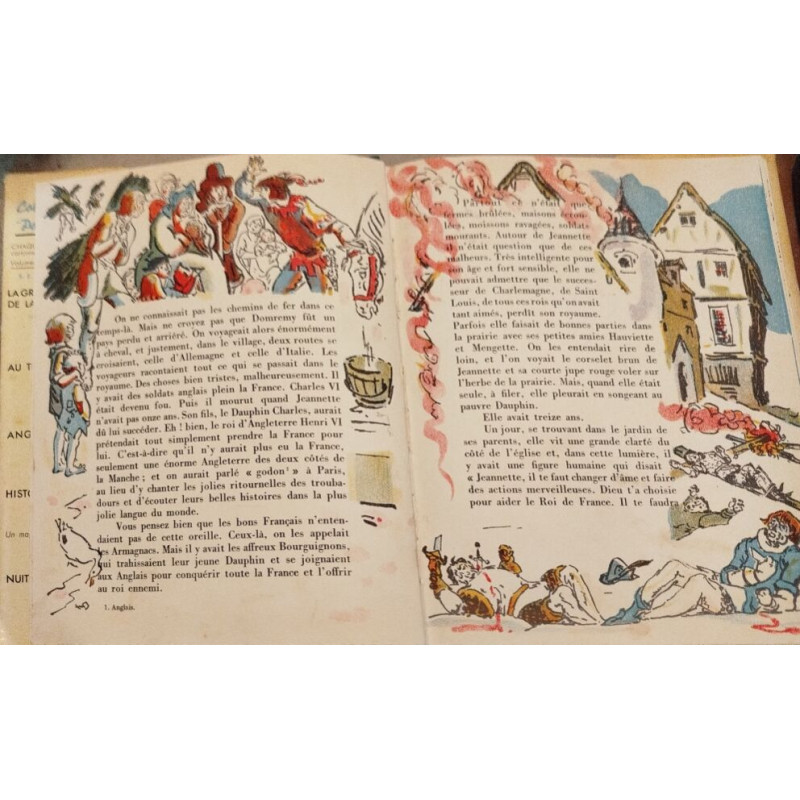 LA GR
DE LA
AU T
ANG
HISTO
NUIT
On ne connaissait pas les chemins de fer dans ce
temps-là. Mais ne croyez pas que Domremy fût un
pays perdu et arriéré. On voyageait alors énormément
à cheval, et justement, dans le village, deux routes se
croisaient, celle d'Allemagne et celle d'Italie. Les
voyageurs racontaient tout ce qui se passait dans le
royaume. Des choses bien tristes, malheureusement. Il
y avait des soldats anglais plein la France. Charles VI
était devenu fou. Puis il mourut quand Jeannette
n'avait pas onze ans. Son fils, le Dauphin Charles, aurait
dû lui succéder. Eh ! bien, le roi d'Angleterre Henri VI
prétendait tout simplement prendre la France pour
lui. C'est-à-dire qu'il n'y aurait plus eu la France,
seulement une énorme Angleterre des deux côtés de
la Manche ; et on aurait parlé « godon¹ » à Paris,
au lieu d'y chanter les jolies ritournelles des trouba-
dours et d'écouter leurs belles histoires dans la plus
jolie langue du monde.
Vous pensez bien que les bons Français n'enten-
daient pas de cette oreille. Ceux-là, on les appelait
les Armagnacs. Mais il y avait les affreux Bourguignons,
qui trahissaient leur jeune Dauphin et se joignaient
aux Anglais pour conquérir toute la France et l'offrir
au roi ennemi.
1. Anglais.
Partout ce n'était que
fermes brûlées, maisons écrou-
lées, moissons ravagées, soldats
mourants. Autour de Jeannette
il n'était question que de ces
malheurs. Très intelligente pour
son âge et fort sensible, elle ne
pouvait admettre que le succes-
seur de Charlemagne, de Saint
Louis, de tous ces rois qu'on avait
tant aimés, perdît son royaume.
Parfois elle faisait de bonnes parties dans
la prairie avec ses petites amies Hauviette
et Mengette. On les entendait rire de
loin, et l'on voyait le corselet brun de
Jeannette et sa courte jupe rouge voler sur
l'herbe de la prairie. Mais, quand elle était
seule, à filer, elle pleurait en songeant au
pauvre Dauphin.
Elle avait treize ans.
Un jour, se trouvant dans le jardin de
ses parents, elle vit une grande clarté du
côté de l'église et, dans cette lumière, il
y avait une figure humaine qui disait
« Jeannette, il te faut changer d'âme et faire
des actions merveilleuses. Dieu t'a choisie
pour aider le Roi de France. Il te faudra